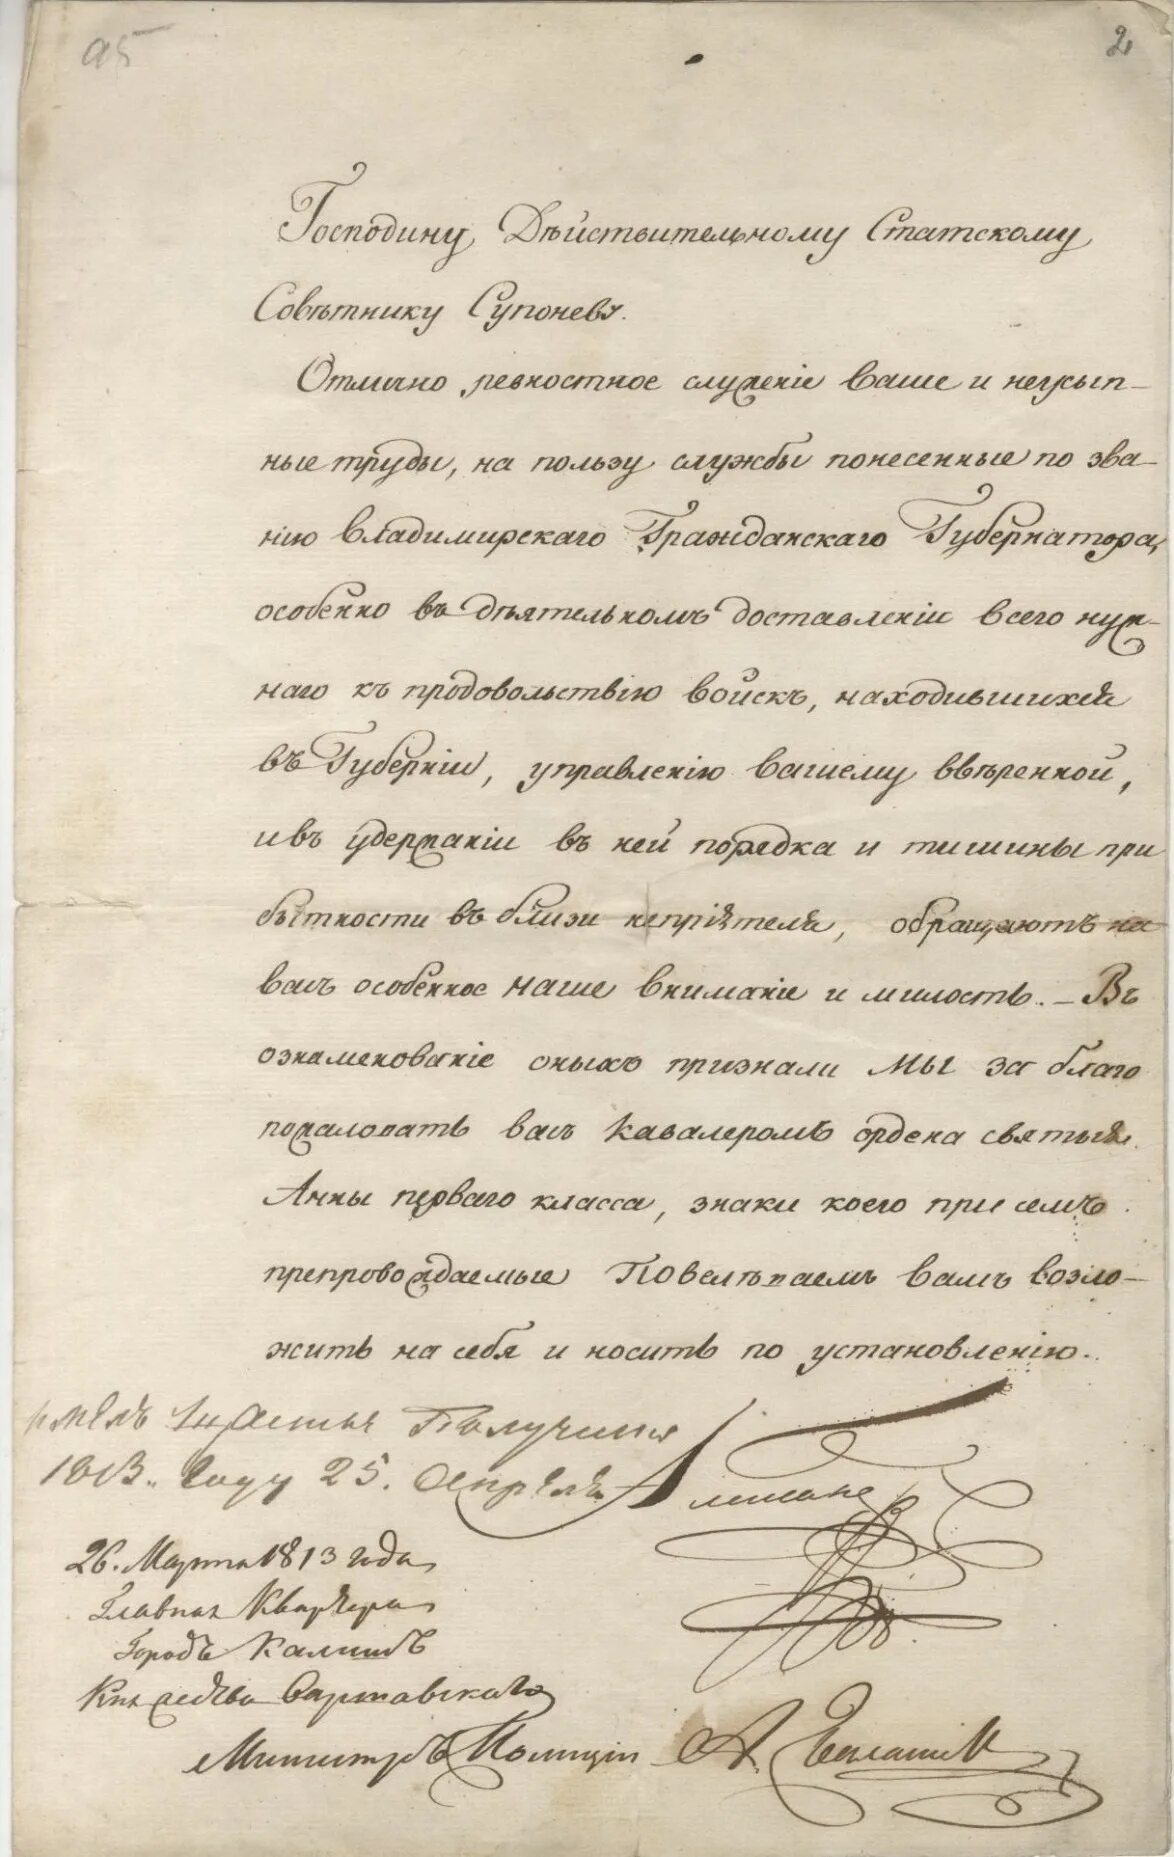 95
2
Господину Дѣйствительному Статскому
Совѣтнику Супоневу.
Отлично ревностное служеніе ваше и неусып-
ные труды, на пользу службы понесенные по зва-
нію Владимирскаго Гражданскаго Губернатора,
особенно въ дѣятельномъ доставленіи всего нуж-
наго къ продовольствію войскъ, находившихся
въ Губерніи, управленію вашему ввѣренной,
и въ удержаніи въ ней порядка и тишины при
бытности въ близи непріятеля, обращаютъ на
васъ особенное наше вниманіе и милость. – Въ
ознаменованіе оныхъ признали мы за благо
пожаловать васъ кавалеромъ ордена святыя
Анны перваго класса, знаки коего при семъ
препровождаемые Повелѣваемъ вамъ возло-
жить на себя и носить по установленію.
имелъ щастье Получить
1813. году 25. Апреля
Александръ
26. Марта 1813 года
Главная Квартира
Городъ Калишъ
Княжества Варшавскаго
Министръ Полиціи А. Балашов